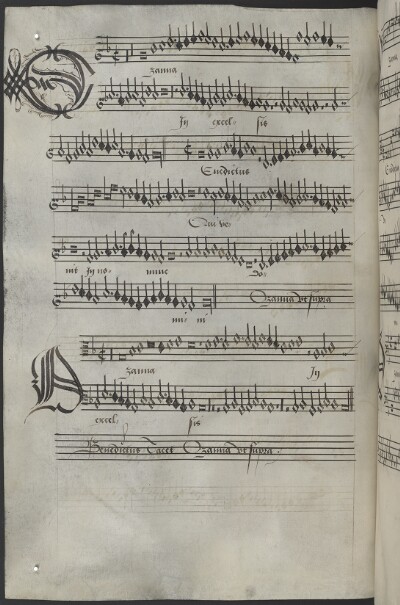 Ozanna
In excel- sis
Benedictus
Qui ve-
nit In no- mine Do-
mi- ni Ozanna ut supra
Ozanna In
excel- sis
Benedictus Tacet Ozanna ut supra